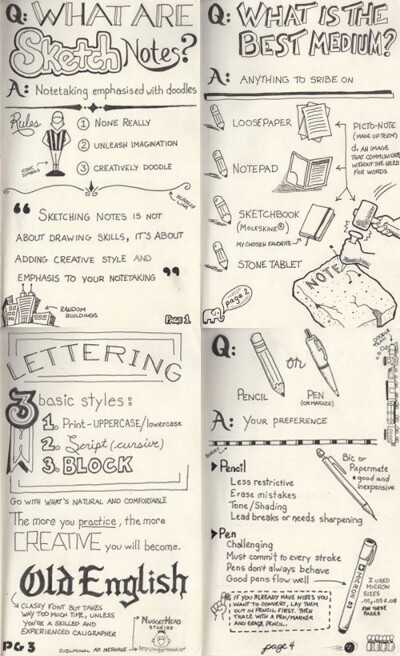 Q: WHAT ARE
Sketch Notes?
A: Notetaking emphasised with doodles
Rules
1 NONE REALLY
2 UNLEASH IMAGINATION
3 CREATIVELY DOODLE
“ SKETCHING NOTES IS NOT
ABOUT DRAWING SKILLS, IT'S ABOUT
ADDING CREATIVE STYLE AND
EMPHASIS TO YOUR NOTETAKING ”
RANDOM
BUILDINGS
PAGE 1
Q: WHAT IS THE
BEST MEDIUM?
A: ANYTHING TO SRIBE ON
LOOSEPAPER
NOTEPAD
SKETCHBOOK
(MOLESKINE®)
MY CHOSEN FAVORITE
STONE TABLET
PICTO-NOTE
(MADE UP TERM)
d. AN IMAGE
THAT COMMUNICATES
WITHOUT THE NEED
FOR WORDS
NOTE
page 2
LETTERING
3 basic styles:
1. Print-UPPERCASE/lowercase
2. Script (cursive)
3. BLOCK
GO WITH WHAT'S NATURAL AND COMFORTABLE
The more you practice, the more
CREATIVE you will become.
Old English
CLASSY FONT BUT TAKES
WAY TOO MUCH TIME, UNLESS
YOU'RE A SKILLED AND
EXPERIENCED CALIGRAPHER
NUGGETHEAD
STUDIOS
SUBLIMINAL AD MESSAGE
PG 3
Q:
PENCIL
or
PEN
(OR MARKER)
A: YOUR PREFERENCE
Pencil
Less restrictive
Erase mistakes
Tone/Shading
Lead breaks or needs sharpening
Bic or
Papermate
good and
inexpensive
Pen
Challenging
Must commit to every stroke
Pens don't always behave
Good pens flow well
MICRON
I USED
MICRON
SIZES
FOR THESE
PAGES
IF YOU ALREADY HAVE NOTES YOU
WANT TO CONVERT, LAY THEM
OUT IN PENCIL FIRST. THEN
TRACE WITH A PEN/MARKER
AND ERASE PENCIL.
page 4